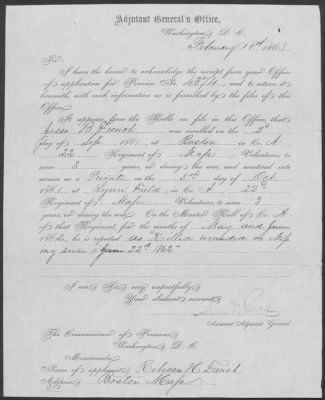 Adjutant General's Office,
Washington, D. C.
February 1863
Sir:
I have the honor to acknowledge the receipt from your Office
of application for Pension No. 4374, and to return it
herewith, with such information as is furnished by the files of this
Office.
It appears from the Rolls on file in this Office, that
B. French was enrolled on the 2d
day of Sep, 1861, at Boston in Co. A
22 Regiment of Mass Volunteers, to
serve 3 years, or during the war, and mustered into
service as a Private on the 5th day of Oct
1861, at Lynn Field in Co. A 22d
Regiment of Mass Volunteers, to serve 3
years, or during the war. On the Muster Roll of Co. A
of that Regiment, for the months of May and June
1862, he is reported as "Killed wounded or Miss
ing since June 1862"
I am, Sir, very respectfully,
Your obedient servant,
Assistant Adjutant General.
The Commissioner of Pensions,
Washington, D. C.
Memoranda:
Name of applicant, Rebecca H. French
Address, Boston Mass